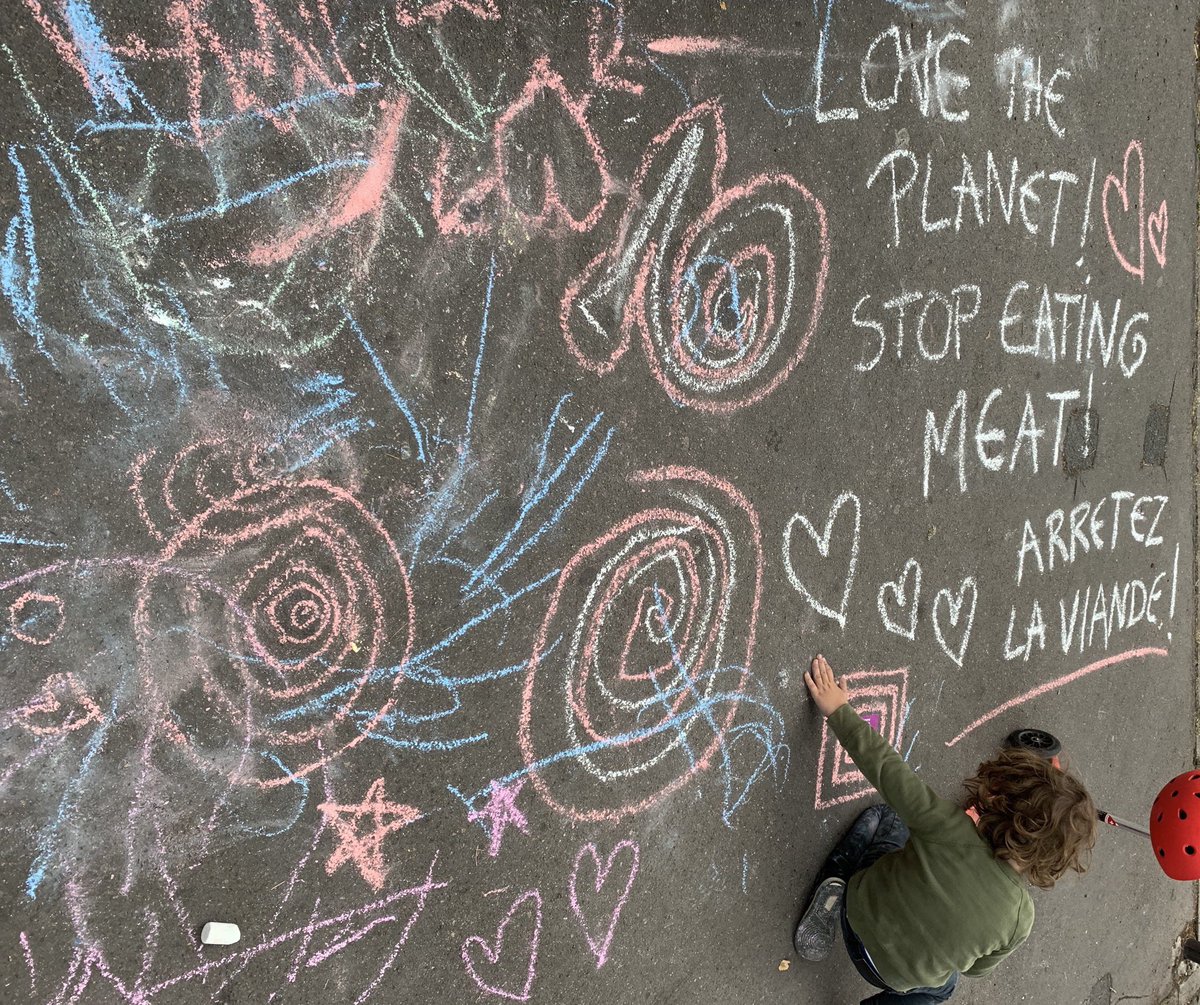 LOVE THE
PLANET!
STOP EATING
MEAT!
ARRETEZ
LA VIANDE!